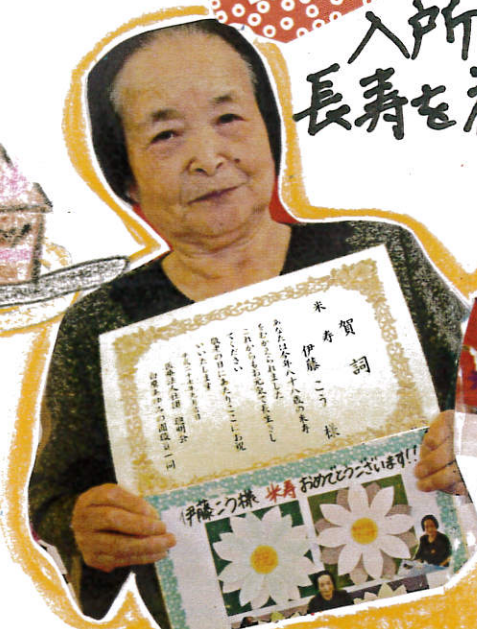 入所
長寿を
賀詞
米寿
伊藤こう様
あなたは今年八十八歳の米寿
をむかえられました
これからもお元気で長生きし
てください
敬老の日にあたりここにお祝
いいたします
伊藤こう様 米寿おめでとうございます!!